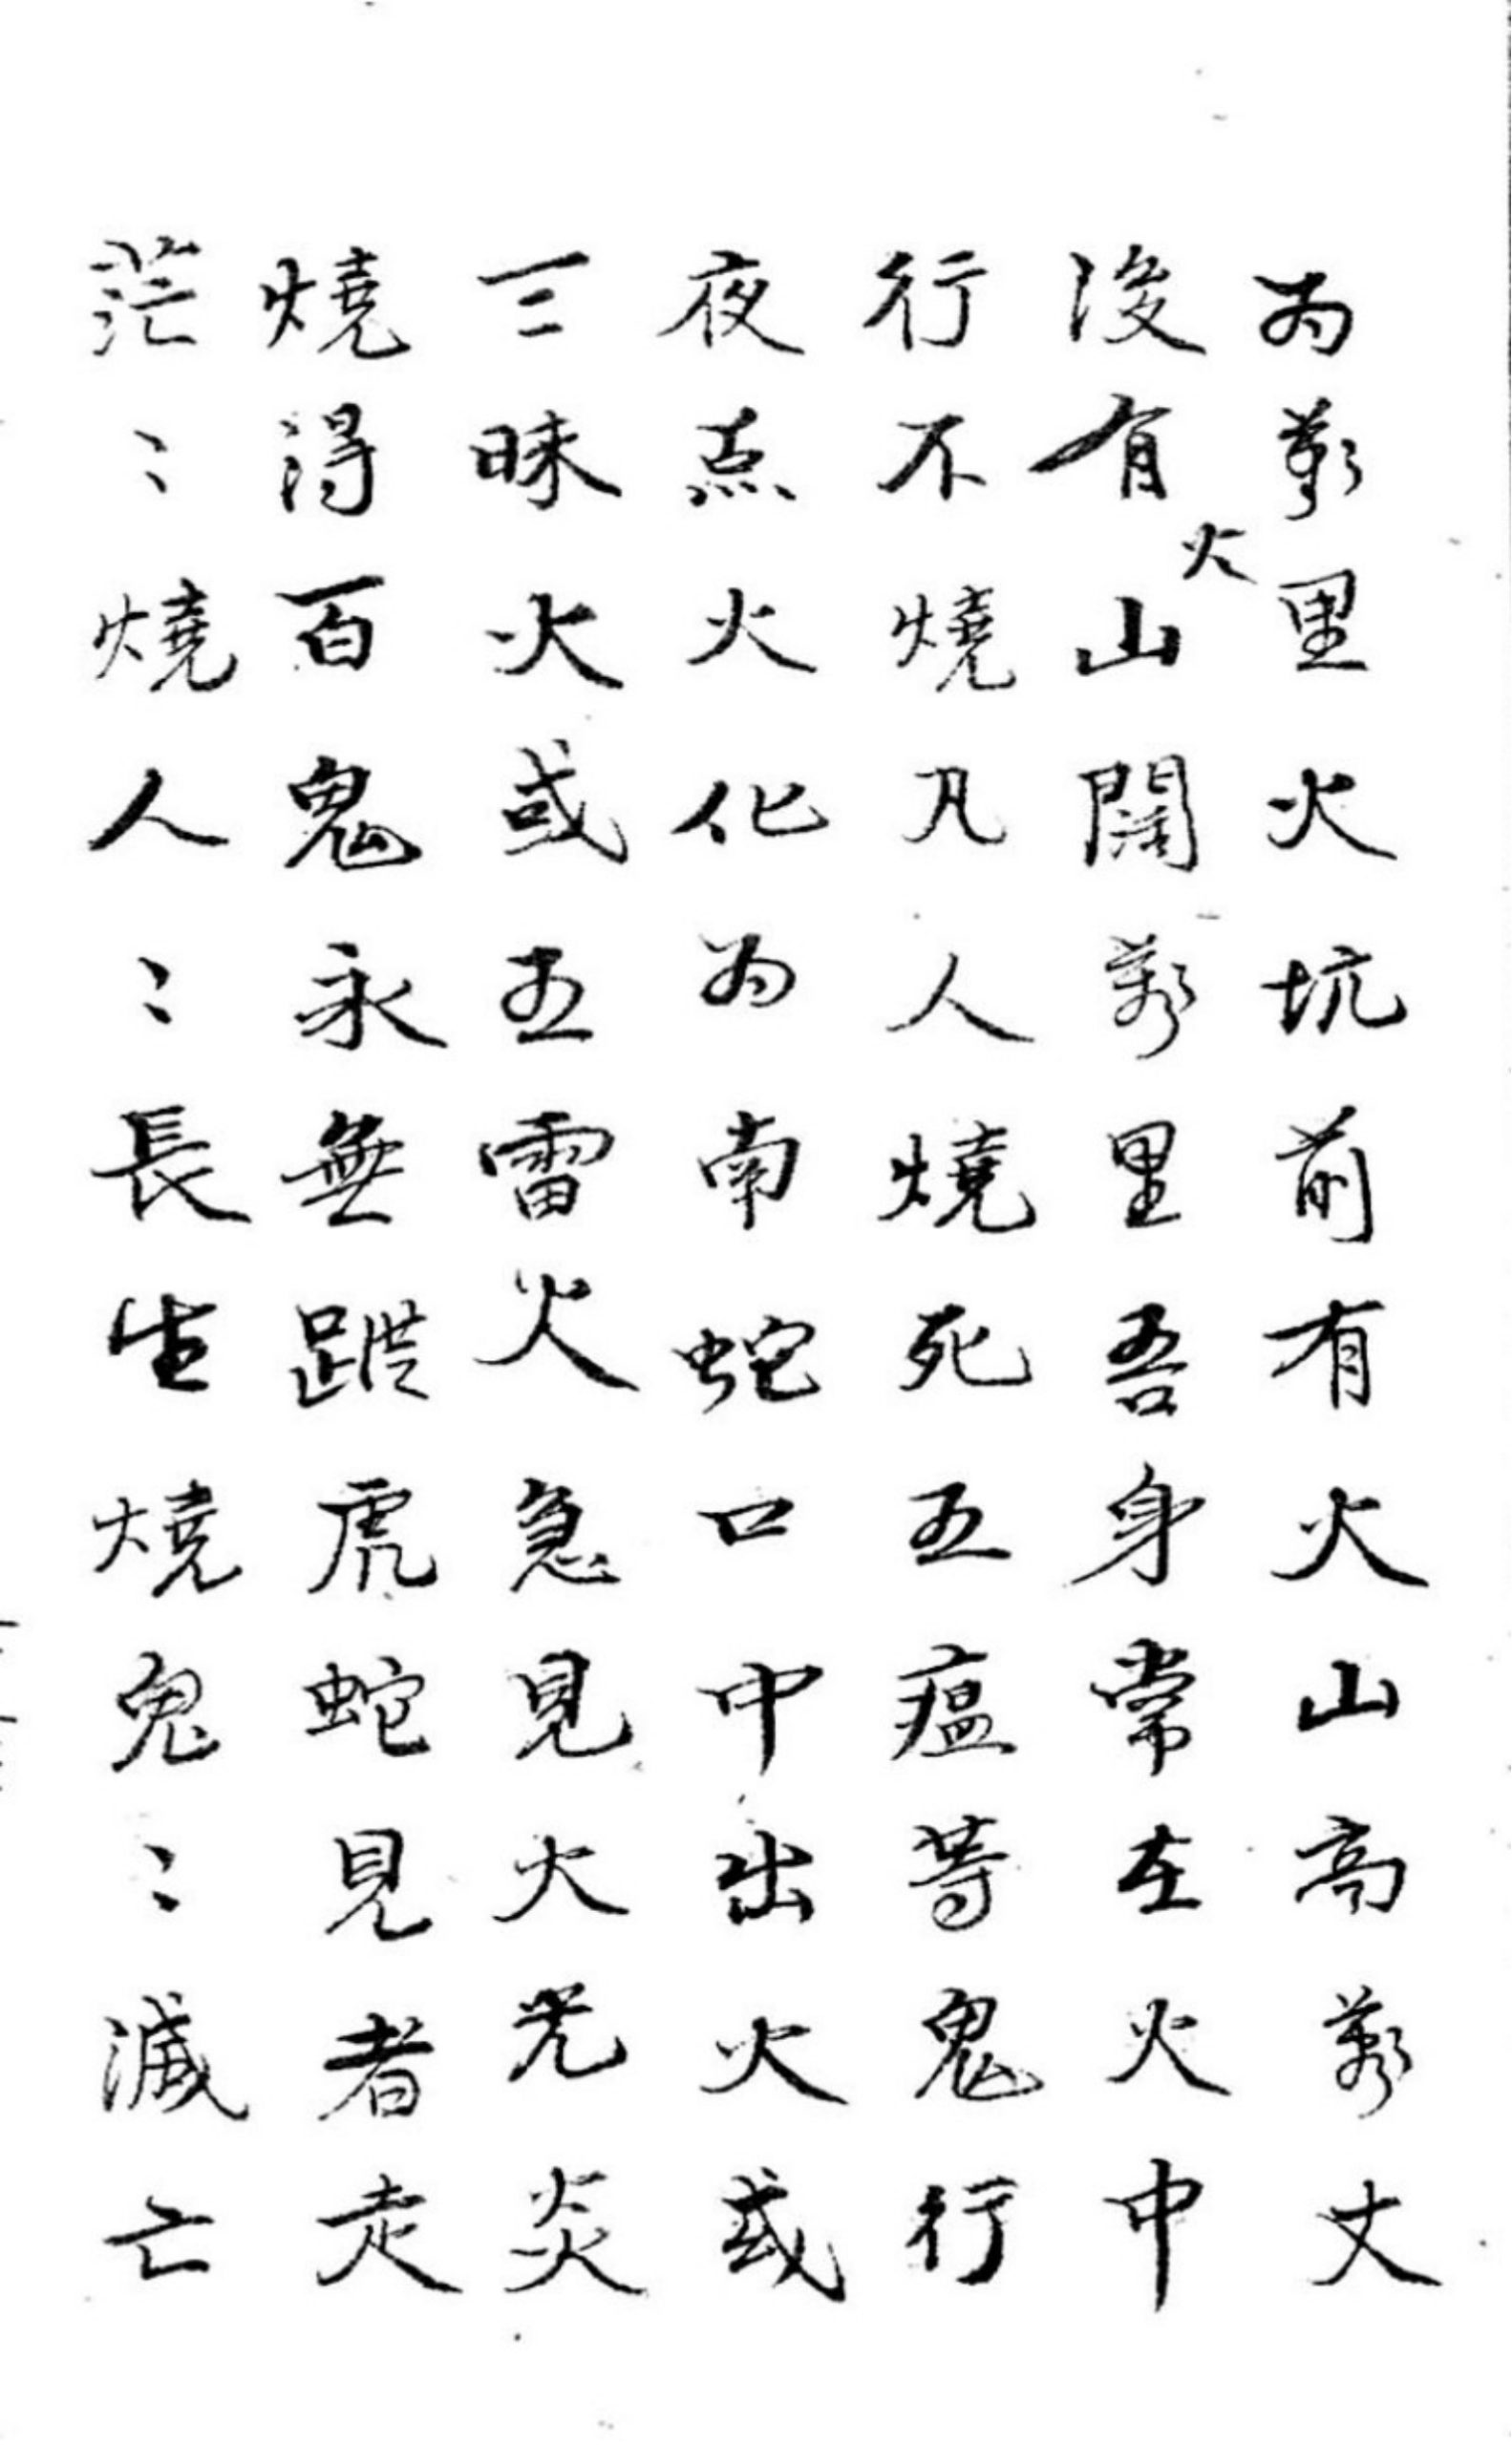 為萬里火坑前有火山高萬丈
後有火山闊萬里吾身常在火中
行不燒凡人燒死五瘟等鬼行
夜点火化為南蛇口中出火或
三昧火或五雷火急見火光炎
燒得百鬼永無蹤虎蛇見者走
茫〻燒人〻長生燒鬼〻滅亡